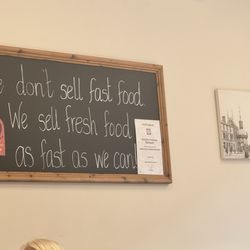 e don't sell fast food.
We sell fresh food
as fast as we can!